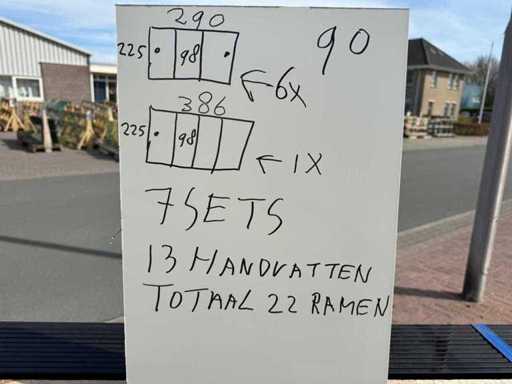 290
90
225
98
6X
386
225
98
1X
7 SETS
13 HANDVATTEN
TOTAAL 22 RAMEN